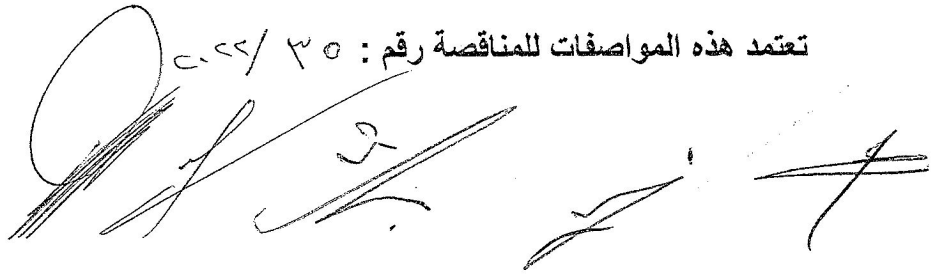 تعتمد هذه المواصفات للمناقصة رقم : ٣٥ /٢٠٢٢